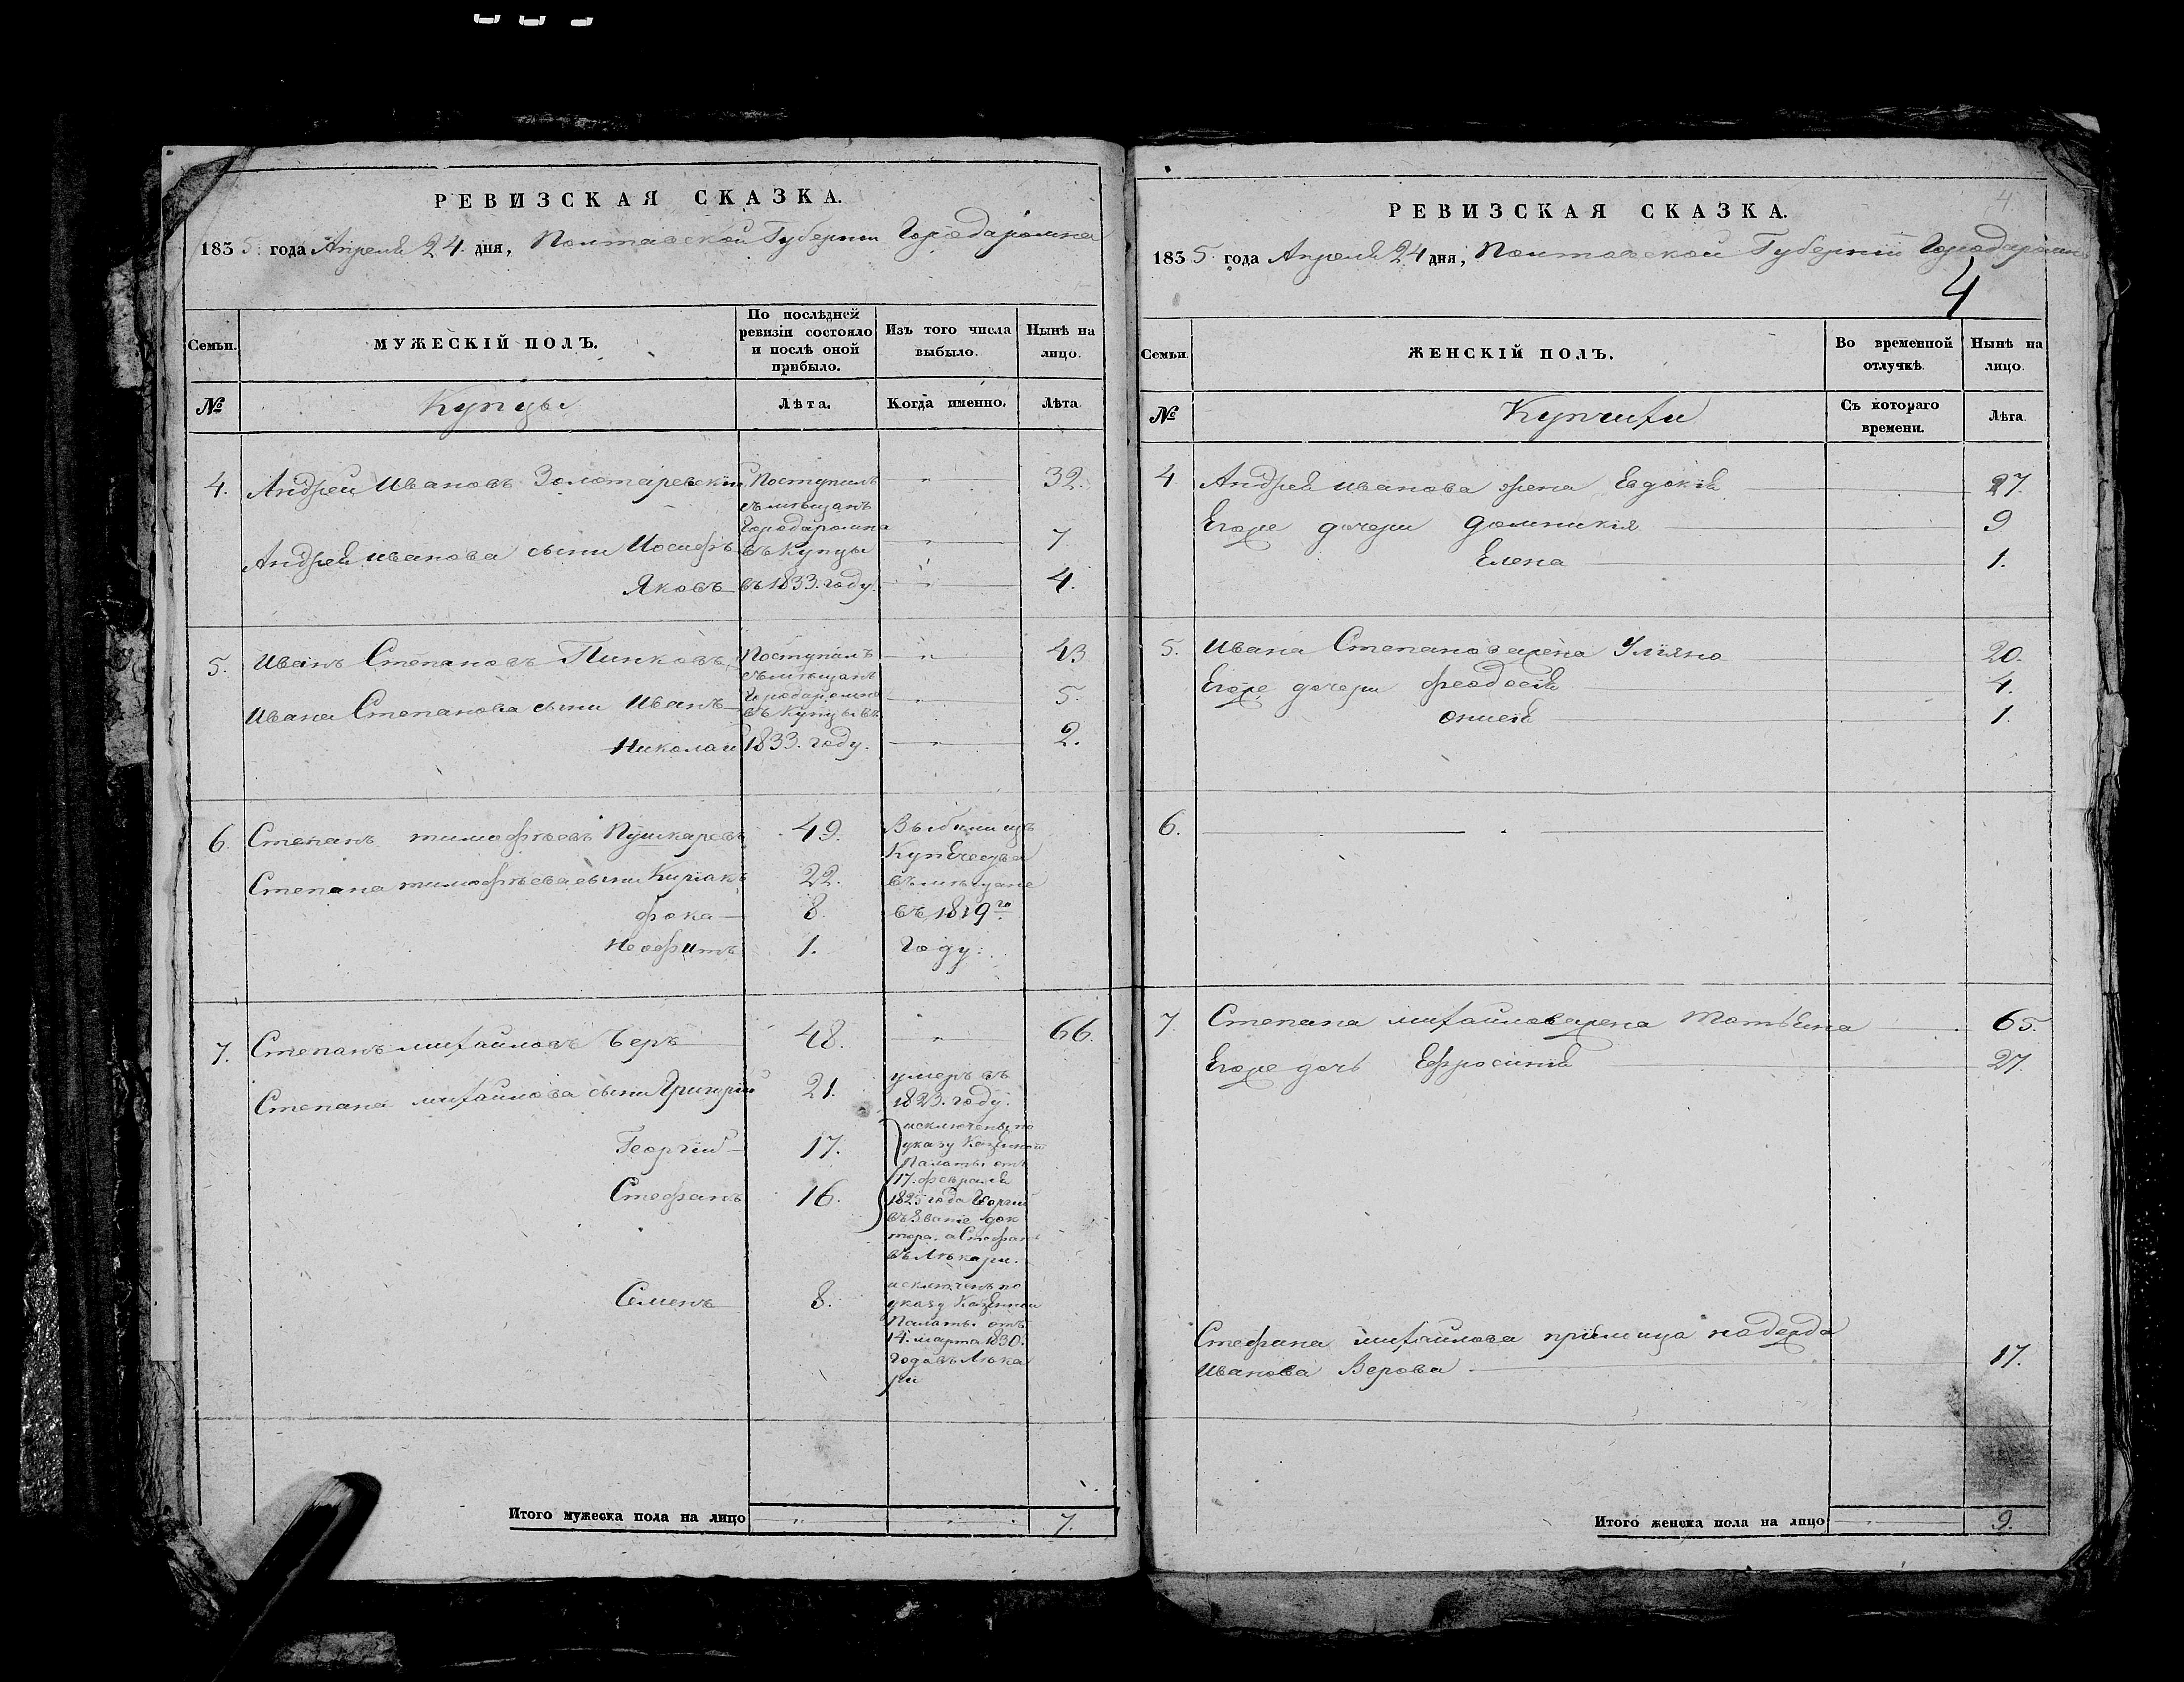 РЕВИЗСКАЯ СКАЗКА.
1835. года Апреля 24. дня, Полтавской Губернии Города Ромна
Семьи.
МУЖЕСКІЙ ПОЛЪ.
По послѣдней ревизіи состояло и послѣ оной прибыло.
Изъ того числа выбыло.
Нынѣ на лицо.
№
Купцы
Лѣта.
Когда именно.
Лѣта
4. Андрей Ивановъ Золотаревскій Поступилъ " 32.
съ мѣщанъ
Города Ромна
Андрея Иванова сыни Иосифъ въ Купцы " 7
Яковъ въ 1833. году. " 4.
5. Иванъ Степановъ Пинковъ Поступилъ " 43
съ мѣщанъ
Города Ромна
Ивана Степанова сыни Иванъ въ Купцы въ " 5.
Николай 1833. году. " 2.
6. Степанъ тимофѣевъ Пушкаревъ 49. Выбили изъ
Купечества
Степана тимофѣева сыни Киріакъ 22. въ мѣщане
фока 8. въ 1819го
Неофитъ 1. году.
7. Степанъ михайловъ Веръ 48. " 66.
Степана михайлова сыни Григорій 21. умеръ въ
1823. году.
Георгій 17. исключены по
указу Казенной
Палаты отъ
17. февраля
Стефанъ 16. 1825 года Георгій
въ Званіе док
тора, а Стефанъ
въ Лѣкари.
Семенъ 8. исключенъ по
указу Казенной
Палаты отъ
14. марта 1830.
года въ Лѣка
ри
Итого мужеска пола на лицо " " 7.
4
РЕВИЗСКАЯ СКАЗКА.
1835. года Апреля 24 дня, Полтавской Губерніи Города Ромна
4
Семьи.
ЖЕНСКІЙ ПОЛЪ.
Во временной отлучкѣ.
Нынѣ на лицо.
№
Купчихи
Съ котораго времени.
Лѣта
4 Андрея Иванова жена Евдокія 27.
Егоже дочери Домникія 9
Елена 1.
5. Ивана Степанова жена Уліяна 20.
Егоже дочери феодосія 4.
1.
6.
7. Степана михайлова жена Татіяна 65.
Егоже дочь Ефросинія 27.
Стефана михайлова пріімица надежда
Иванова Верова 17.
Итого женска пола на лицо 9.